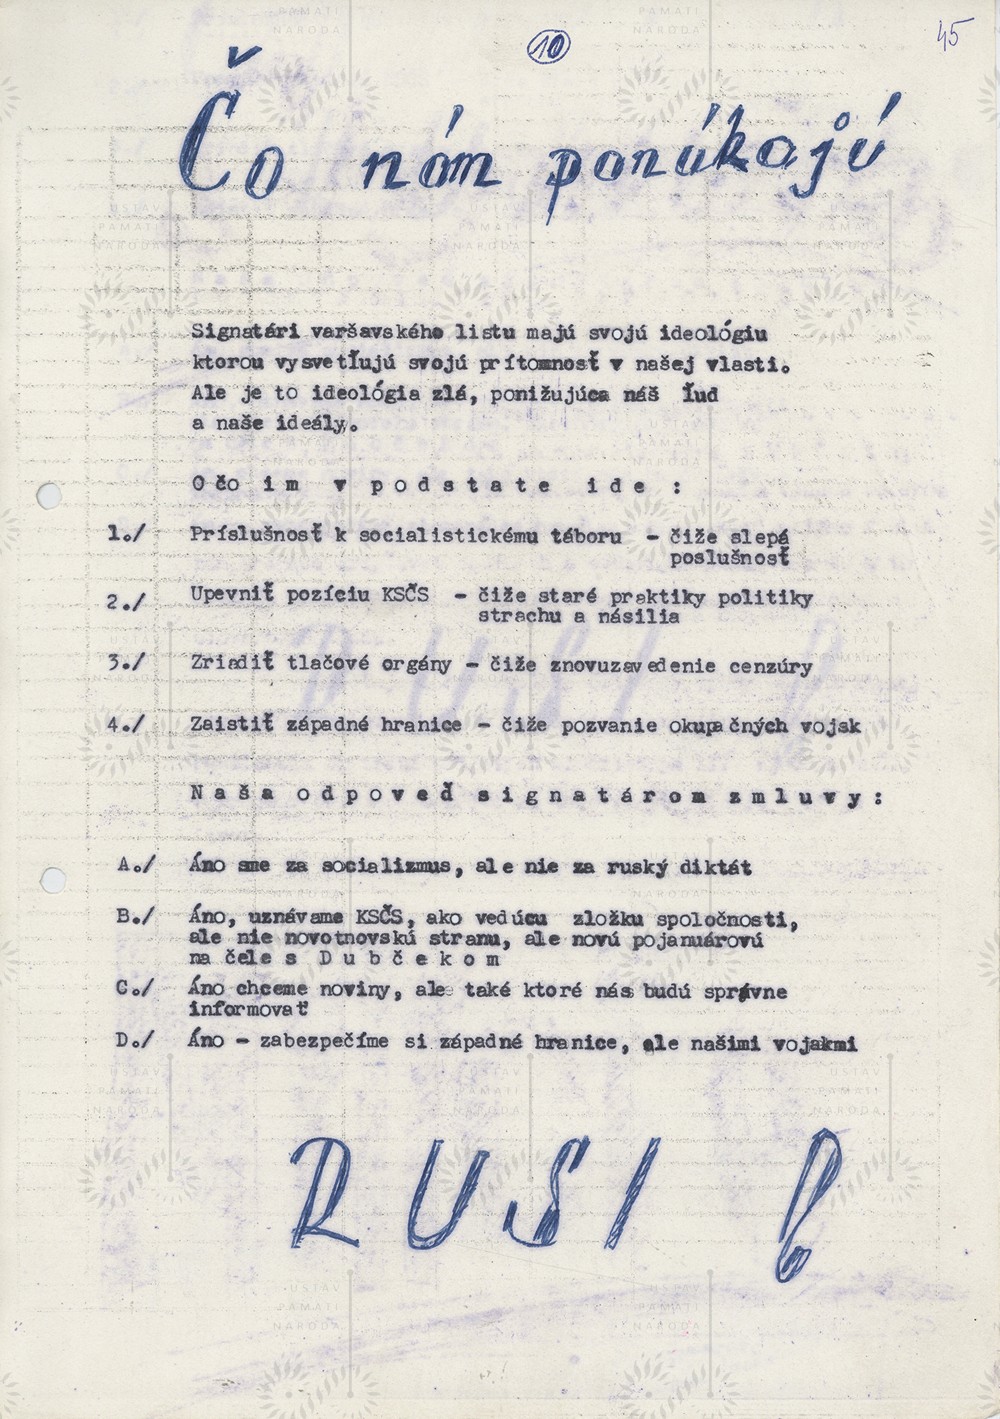 10
45
Čo nám ponúkajú
Signatári varšavského listu majú svojú ideológiu
ktorou vysvetľujú svojú prítomnosť v našej vlasti.
Ale je to ideológia zlá, ponižujúca náš ľud
a naše ideály.
Očo im v podstate ide :
1./ Príslušnosť k socialistickému táboru - čiže slepá
poslušnosť
2./ Upevniť pozíciu KSČS - čiže staré praktiky politiky
strachu a násilia
3./ Zriadiť tlačové orgány - čiže znovuzavedenie cenzúry
4./ Zaistiť západné hranice - čiže pozvanie okupačných vojsk
Naša odpoveď signatárom zmluvy:
A./ Áno sme za socializmus, ale nie za ruský diktát
B./ Áno, uznávame KSČS, ako vedúcu zložku spoločnosti,
ale nie novotnovskú stranu, ale novú pojanuárovú
na čele s Dubčekom
C./ Áno chceme noviny, ale také ktoré nás budú správne
informovať
D./ Áno - zabezpečíme si západné hranice, ale našimi vojakmi
RUSI !
ÚSTAV
PAMÄTI
NÁRODA